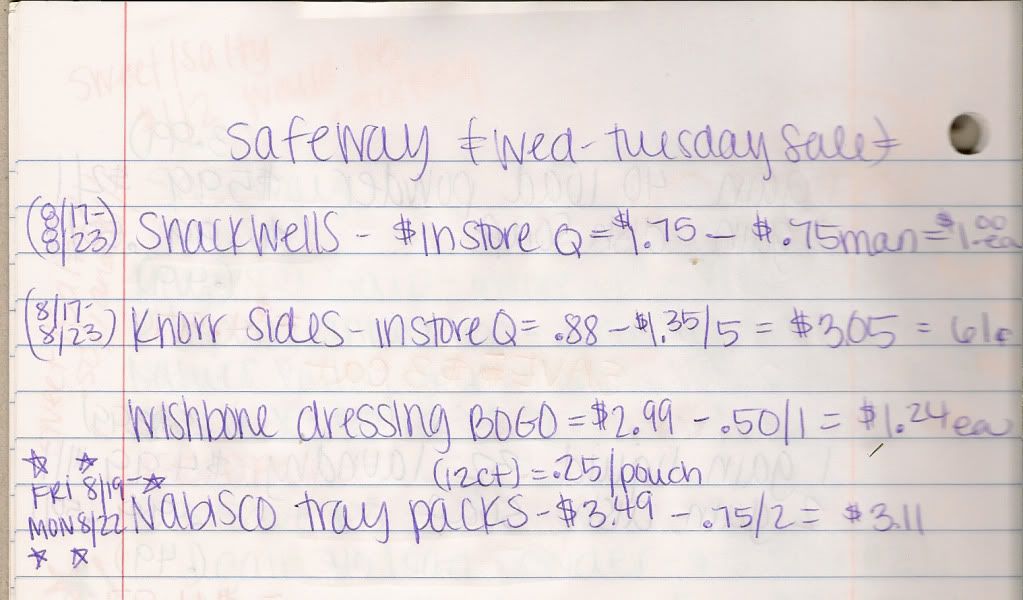 Safeway {Wed-Tuesday Sale}
(8/17-
8/23) Snackwells - $instore Q = $1.75 - $.75man = $1.00 ea
(8/17-
8/23) Knorr sides - instore Q = .88 - $1.35/5 = $3.05 = 61¢
Wishbone dressing BOGO = $2.99 - .50/1 = $1.24 ea
(12ct) = .25/pouch
FRI 8/19-
MON 8/22 Nabisco tray packs - $3.49 - .75/2 = $3.11